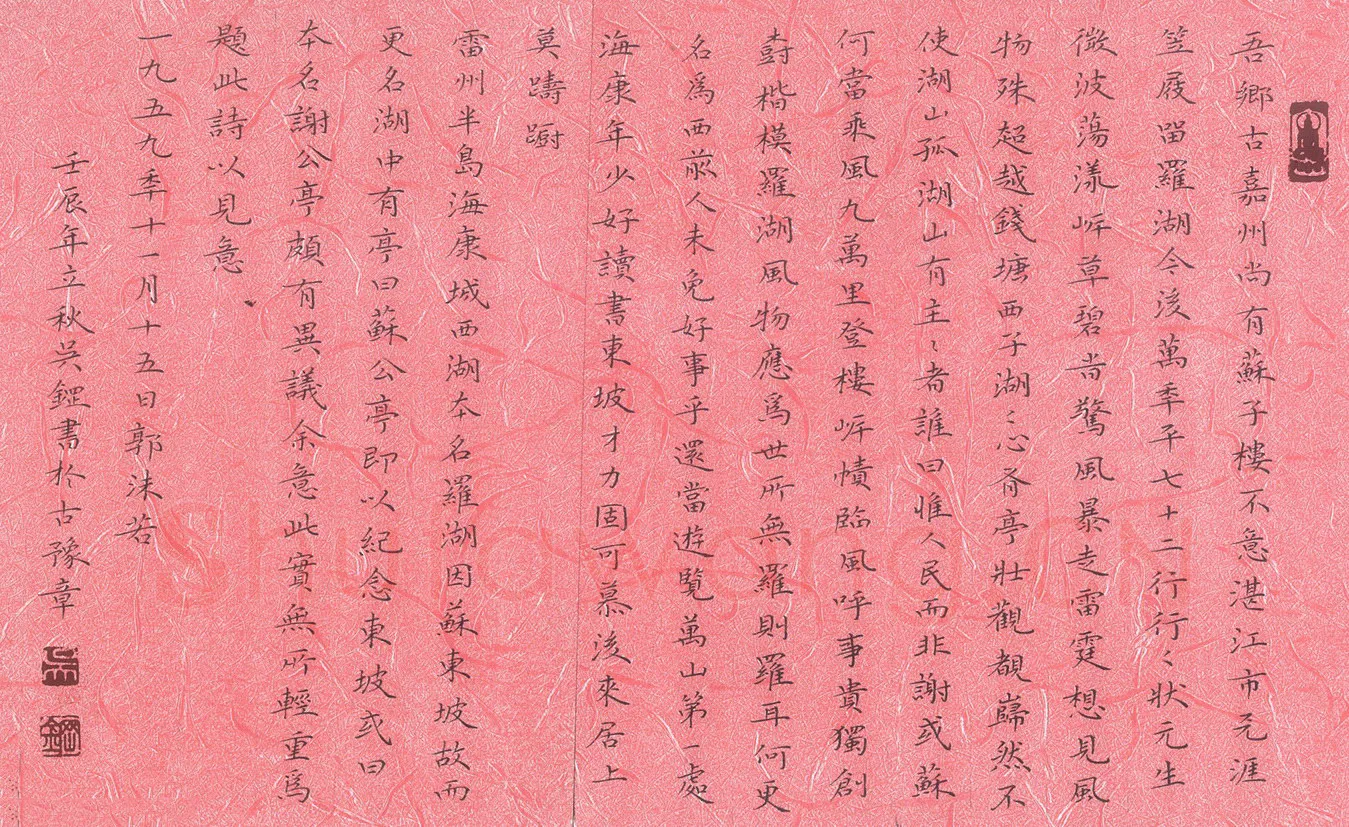 吾鄉古嘉州尚有蘇子樓不意湛江市无涯
笠屐留羅湖今後萬秊平七十二行行〻狀元生
微波蕩漾岸草碧岩驚風暴走雷霆想見風
物殊超越錢塘西子湖〻心脊亭壯觀覩巋然不
使湖山孤湖山有主〻者誰曰惟人民而非謝或蘇
何當乘風九萬里登樓岸幘臨風呼事貴獨創
尌楷模羅湖風物應爲世所無羅則羅耳何更
名爲西前人未免好事乎還當遊覽萬山第一處
海康年少好讀書東坡才力固可慕後來居上
莫躊躕
雷州半島海康城西湖本名羅湖因蘇東坡故而
更名湖中有亭曰蘇公亭即以紀念東坡或曰
本名謝公亭頗有異議余意此實無所輕重爲
題此詩以見意
一九五九季十一月十五日郭沫若
壬辰年立秋吳鋞書於古豫章